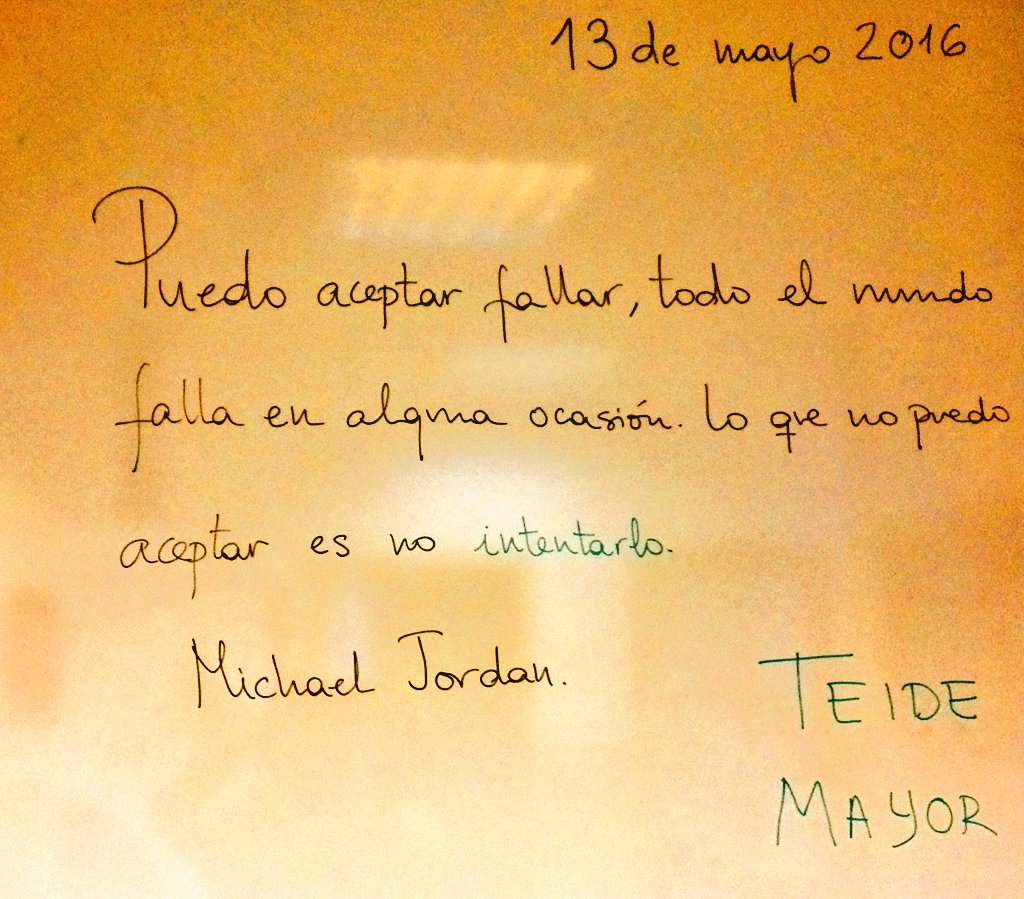 13 de mayo 2016
Puedo aceptar fallar, todo el mundo
falla en alguna ocasión. Lo que no puedo
aceptar es no intentarlo.
Michael Jordan.
TEIDE
MAYOR